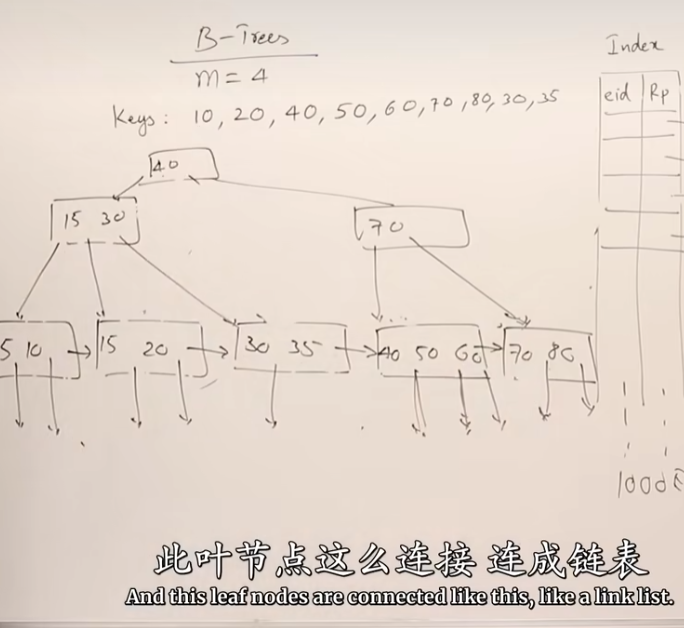 B-Trees
m = 4
Keys: 10, 20, 40, 50, 60, 70, 80, 30, 35
Index
eid Rp
40
15 30
70
5 10
15 20
30 35
40 50 60
70 80
此叶节点这么连接 连成链表
And this leaf nodes are connected like this, like a link list.